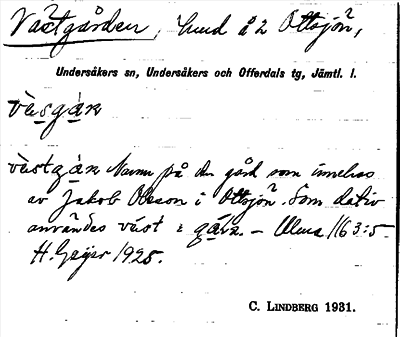 Västgården, hund å 2 Ottsjön,
Undersåkers sn, Undersåkers och Offerdals tg, Jämtl. l.
väsgák
västgák Namn på den gård som innehas
av Jakob Olsson i Ottsjön. Som dativ
användes väst gák. – Ulma 1163:5
H. Geijer 1925.
C. LINDBERG 1931.